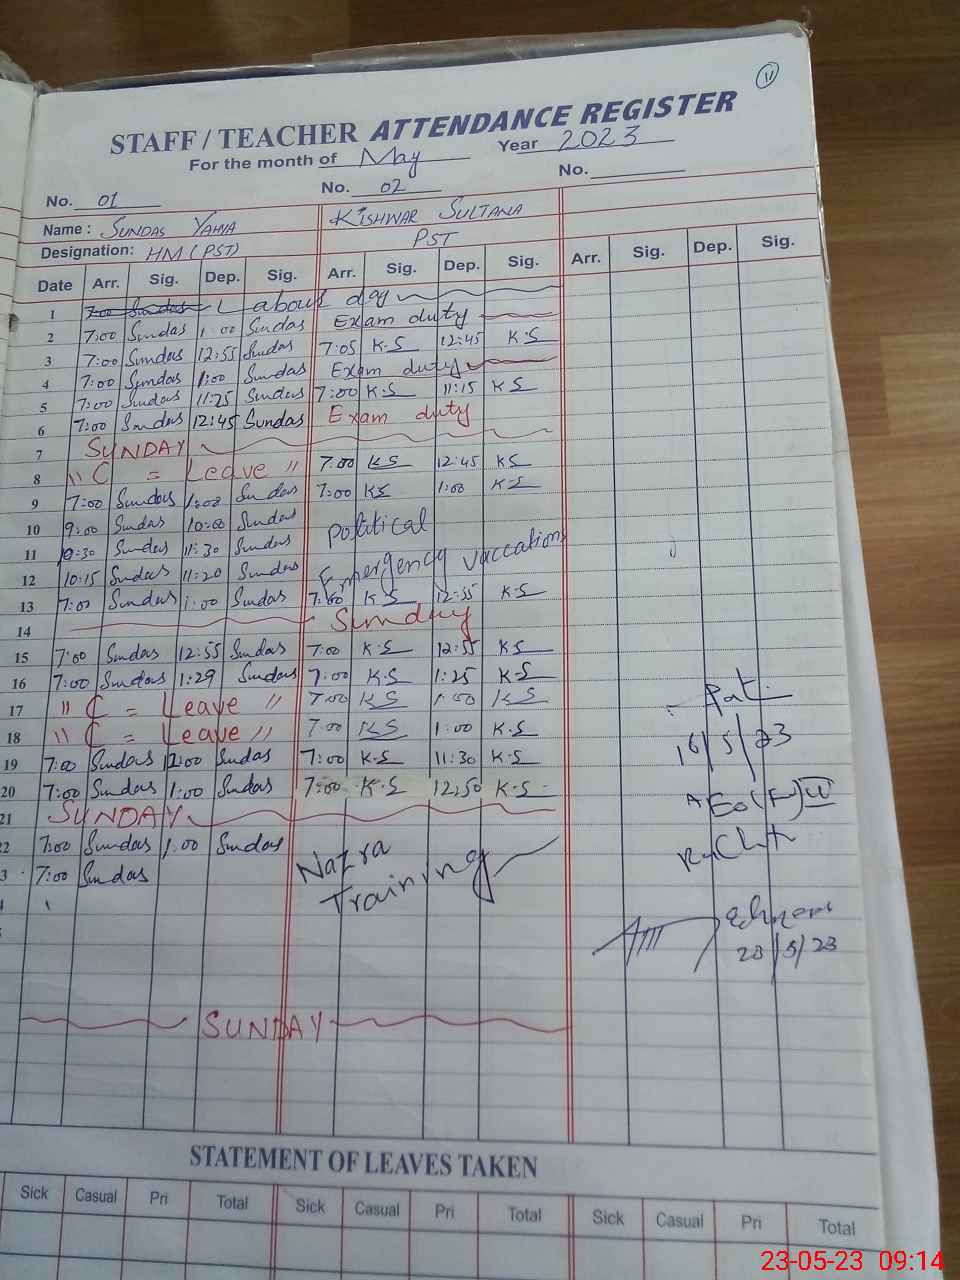 11
STAFF / TEACHER ATTENDANCE REGISTER
For the month of May Year 2023
No. 01 No. 02 No.
Name : SUNDAS YAHYA KISHWAR SULTANA
Designation: HM (PST) PST
Date Arr. Sig. Dep. Sig. Arr. Sig. Dep. Sig. Arr. Sig. Dep. Sig.
1 7:00 Sundas Labour day
2 7:00 Sundas 1:00 Sundas Exam duty
3 7:00 Sundas 12:55 Sundas 7:05 K.S 12:45 K S
4 7:00 Sundas 1:00 Sundas Exam duty
5 7:00 Sundas 11:25 Sundas 7:00 K.S 11:15 K S
6 7:00 Sundas 12:45 Sundas Exam duty
7 SUNDAY
8 " C = Leave " 7:00 KS 12:45 KS
9 7:00 Sundas 1:00 Sundas 7:00 KS 1:00 K-S
10 9:00 Sundas 10:00 Sundas Political
11 10:30 Sundas 11:30 Sundas Emergency vaccations
12 10:15 Sundas 11:20 Sundas
13 7:00 Sundas 1:00 Sundas 7:00 K S 12:55 K-S
14 Sunday
15 7:00 Sundas 12:55 Sundas 7:00 K-S 12:55 K-S
16 7:00 Sundas 1:29 Sundas 7:00 K.S 1:25 K-S
17 " C = Leave " 7:00 KS 1:00 KS
18 " C = Leave " 7:00 KS 1:00 K.S
19 7:00 Sundas 12:00 Sundas 7:00 K.S 11:30 K-S
20 7:00 Sundas 1:00 Sundas 7:00 K.S 12:50 K-S
21 SUNDAY
22 7:00 Sundas 1:00 Sundas Nazra
3 7:00 Sundas Training
SUNDAY
16/5/23
AEO (F) W
23/5/23
STATEMENT OF LEAVES TAKEN
Sick Casual Pri Total Sick Casual Pri Total Sick Casual Pri Total
23-05-23 09:14